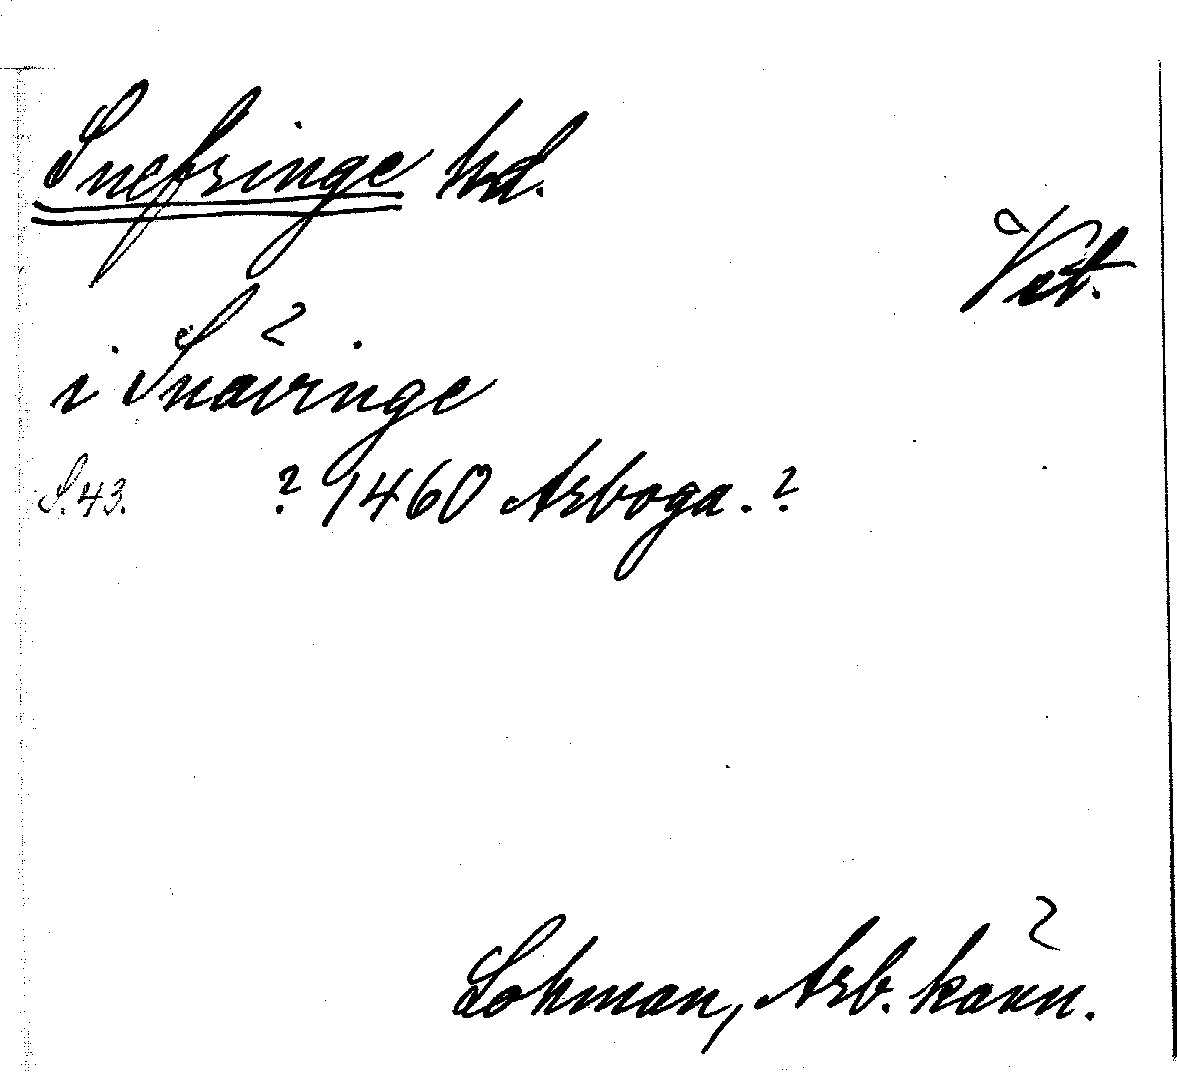 Snefringe hd.
Vst.
i Snäv̅inge
S. 43. ? 1460 Arboga. ?
Lohman, Arb. känn.